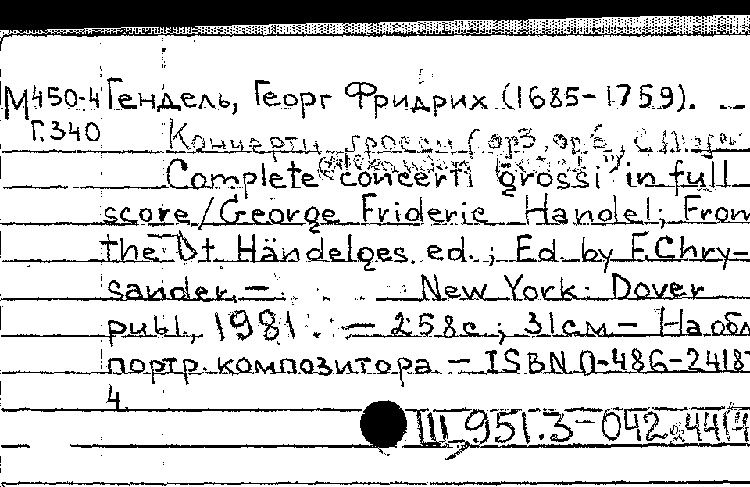 М450-4 Гендель, Георг Фридрих (1685-1759). —
Г.340 Концерти гроссі (ор3, ор6,
Complete concerti grossi in full
score / George Frideric Handel; From
the Dt. Händelges. ed.; Ed. by F. Chry-
sander. — New York: Dover
publ., 1981. — 258с.; 31см — На обл
портр. композитора. — ISBN 0-486-2418
4
Ш 951.3-042